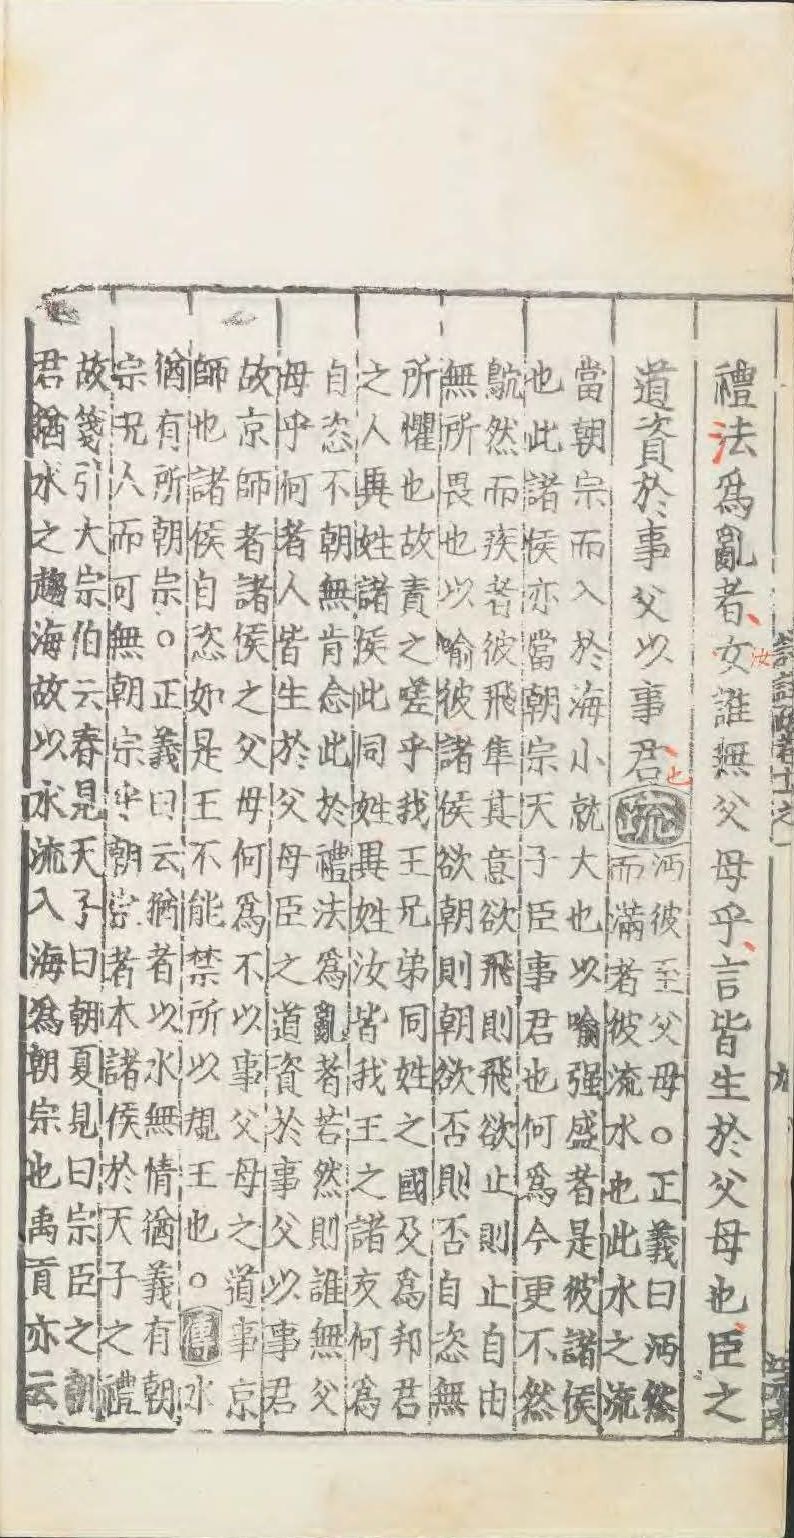 禮法爲亂者女誰無父母乎言皆生於父母也臣之
汝
道資於事父以事君
也
疏
沔彼至父母○正義曰沔然
而滿者彼流水也此水之流
當朝宗而入於海小就大也以喻强盛者是彼諸侯
也此諸侯亦當朝宗天子臣事君也何爲今更不然
鴥然而疾者彼飛隼其意欲飛則飛欲止則止自由
無所畏也以喻彼諸侯欲朝則朝欲否則否自恣無
所懼也故責之嗟乎我王兄弟同姓之國及爲邦君
之人異姓諸侯此同姓異姓汝皆我王之諸友何爲
自恣不朝無肯念此於禮法爲亂者若然則誰無父
母乎何者人皆生於父母臣之道資於事父以事君
故京師者諸侯之父母何爲不以事父母之道事京
師也諸侯自恣如是王不能禁所以規王也○箋水
猶有所朝宗○正義曰云猶者以水無情猶義有朝
宗况人而可無朝宗乎朝宗者本諸侯於天子之禮
故箋引大宗伯云春見天子曰朝夏見曰宗臣之朝
君猶水之趨海故以水流入海爲朝宗也禹貢亦云
九